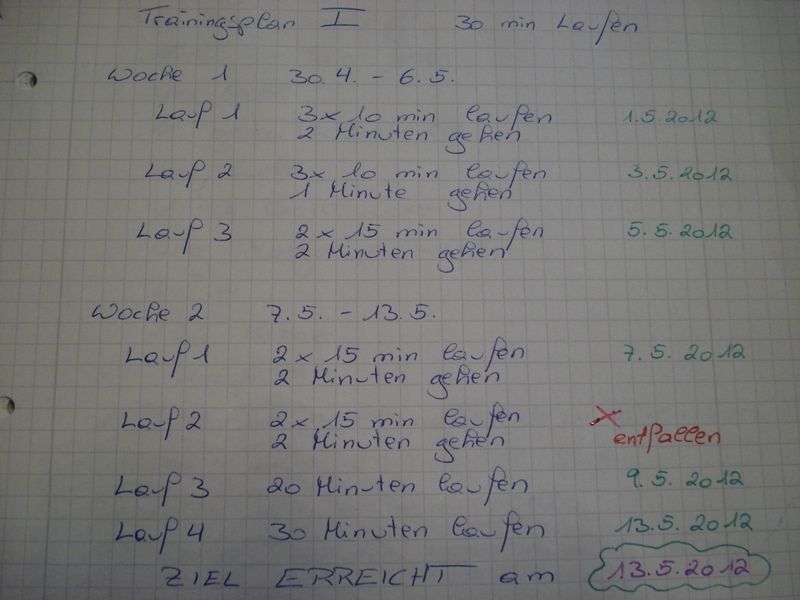 Trainingsplan I 30 min Laufen
Woche 1 30.4. - 6.5.
Lauf 1 3x 10 min laufen 1.5.2012
2 Minuten gehen
Lauf 2 3x 10 min laufen 3.5.2012
1 Minute gehen
Lauf 3 2x 15 min laufen 5.5.2012
2 Minuten gehen
Woche 2 7.5. - 13.5.
Lauf 1 2x 15 min laufen 7.5.2012
2 Minuten gehen
Lauf 2 2x 15 min laufen X
2 Minuten gehen entfallen
Lauf 3 20 Minuten laufen 9.5.2012
Lauf 4 30 Minuten laufen 13.5.2012
ZIEL ERREICHT am 13.5.2012